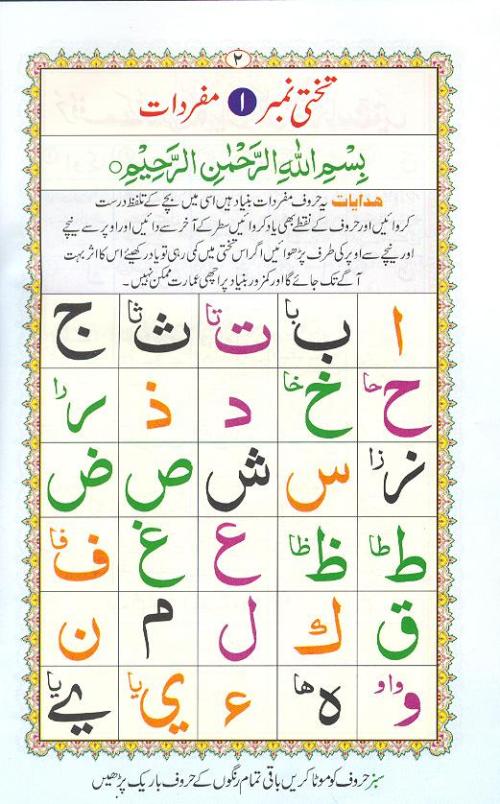 ۲
تختی نمبر ۱ مفردات
بِسْمِ اللهِ الرَّحْمٰنِ الرَّحِيْمِ
هدایات یہ حروف مفردات بنیاد ہیں اسی میں بچے کے تلفظ درست
کروائیں اور حروف کے نقطے بھی یاد کروائیں سطر کے آخر سے دائیں اور اوپر سے نیچے
اور نیچے سے اوپر کی طرف پڑھوائیں اگر اس تختی میں کمی رہی تو یاد رکھیئے اس کا اثر بہت
آگے تک جائے گا اور کمزور بنیاد پر اچھی عمارت ممکن نہیں۔
ا ب با ت تا ث ثا ج
ح حا خ خا د ذ ر را
ز زا س ش ص ض
ط طا ظ ظا ع غ ف فا
ق ك ل م ن
و واو ه ها ء ي يا ے يا
سبز حروف کو موٹا کریں باقی تمام رنگوں کے حروف باریک پڑھیں